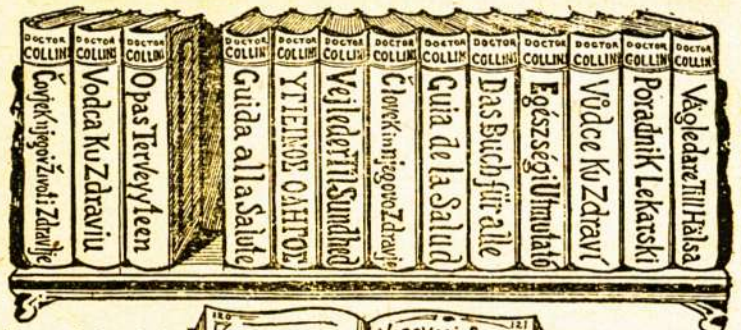 DOCTOR
COLLINS
Čovjek njegov Život i Zdravlje
DOCTOR
COLLINS
Vodca Ku Zdraviu
DOCTOR
COLLINS
Opas Terveyyteen
DOCTOR
COLLINS
Guida alla Salute
DOCTOR
COLLINS
ΥΓΙΕΙΝΟΣ ΟΔΗΓΟΣ
DOCTOR
COLLINS
Vejleder Til Sundhed
DOCTOR
COLLINS
Človek in njegovo Zdravje
DOCTOR
COLLINS
Guia de la Salud
DOCTOR
COLLINS
Das Buch für alle
DOCTOR
COLLINS
Egészségi Utmutató
DOCTOR
COLLINS
Vůdce Ku Zdraví
DOCTOR
COLLINS
Poradnik Lekarski
DOCTOR
COLLINS
Vägledare Till Hälsa
120
121